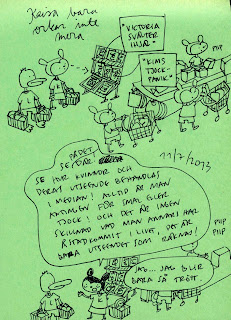 Keisa bara
orkar inte
mera
"VICTORIA
SVÄLTER
IHJÄL"
"KIMS
TJOCK-
PANIK"
PIIP
PÄDET.
SE DÄR.
11/7/2013
SE HUR KVINNOR OCH
DERAS UTSEENDE BEHANDLAS
I MEDIAN! ALLTID ÄR MAN
ANTINGEN FÖR SMAL ELLER
TJOCK! OCH DET ÄR INGEN
SKILLNAD VAD MAN ANNARS HAR
ÅSTADKOMMIT I LIVET, DET ÄR
BARA UTSEENDET SOM RÄKNAS!
PIIP
PIIP
JAG... JAG BLIR
BARA SÅ TRÖTT